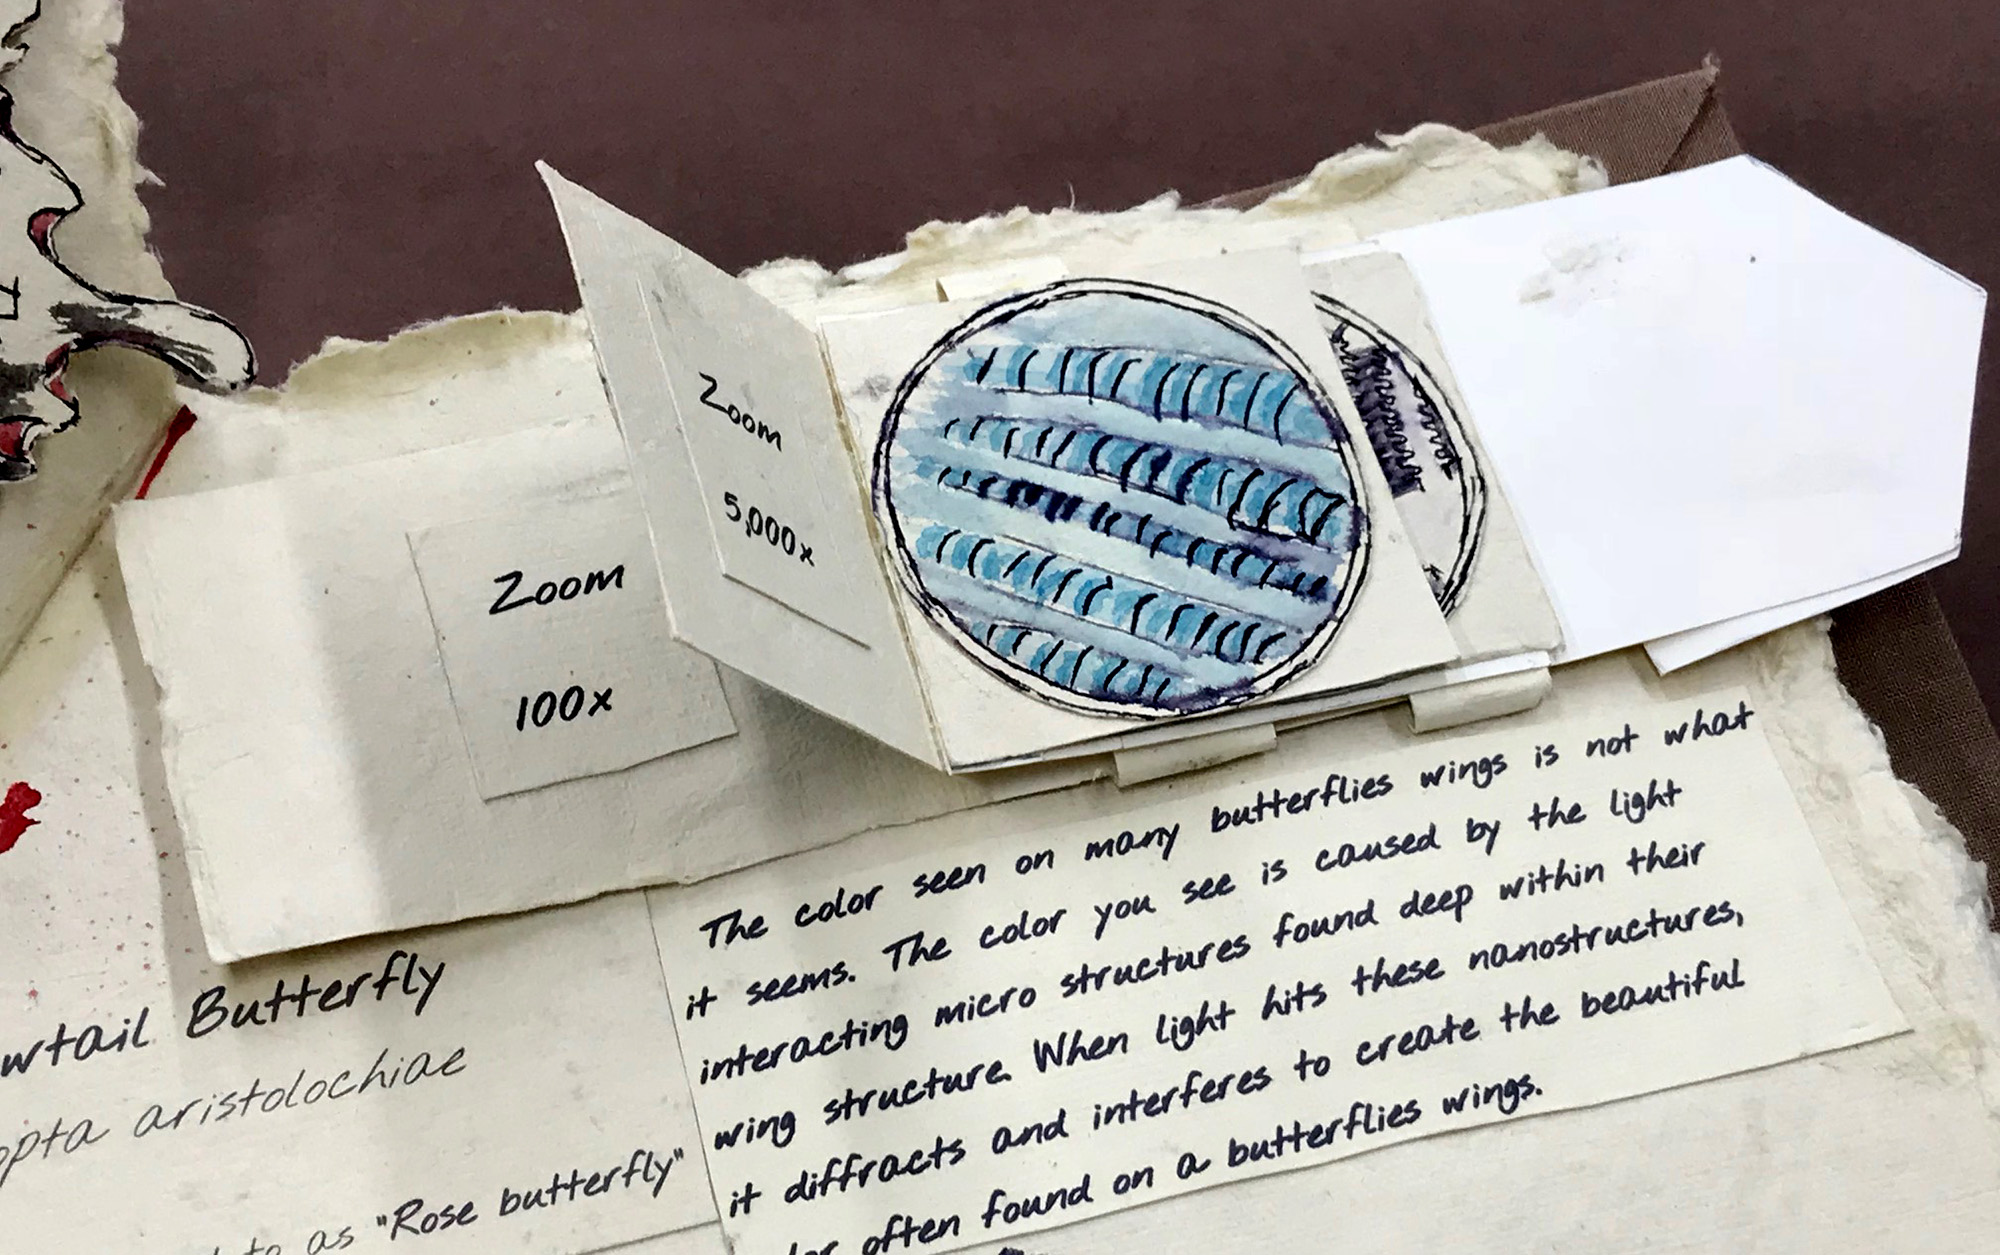 Zoom
5,000x
Zoom
100x
The color seen on many butterflies wings is not what
it seems. The color you see is caused by the light
interacting micro structures found deep within their
wing structure. When light hits these nanostructures,
it diffracts and interferes to create the beautiful
often found on a butterflies wings.
Butterfly
aristolochiae
as "Rose butterfly"